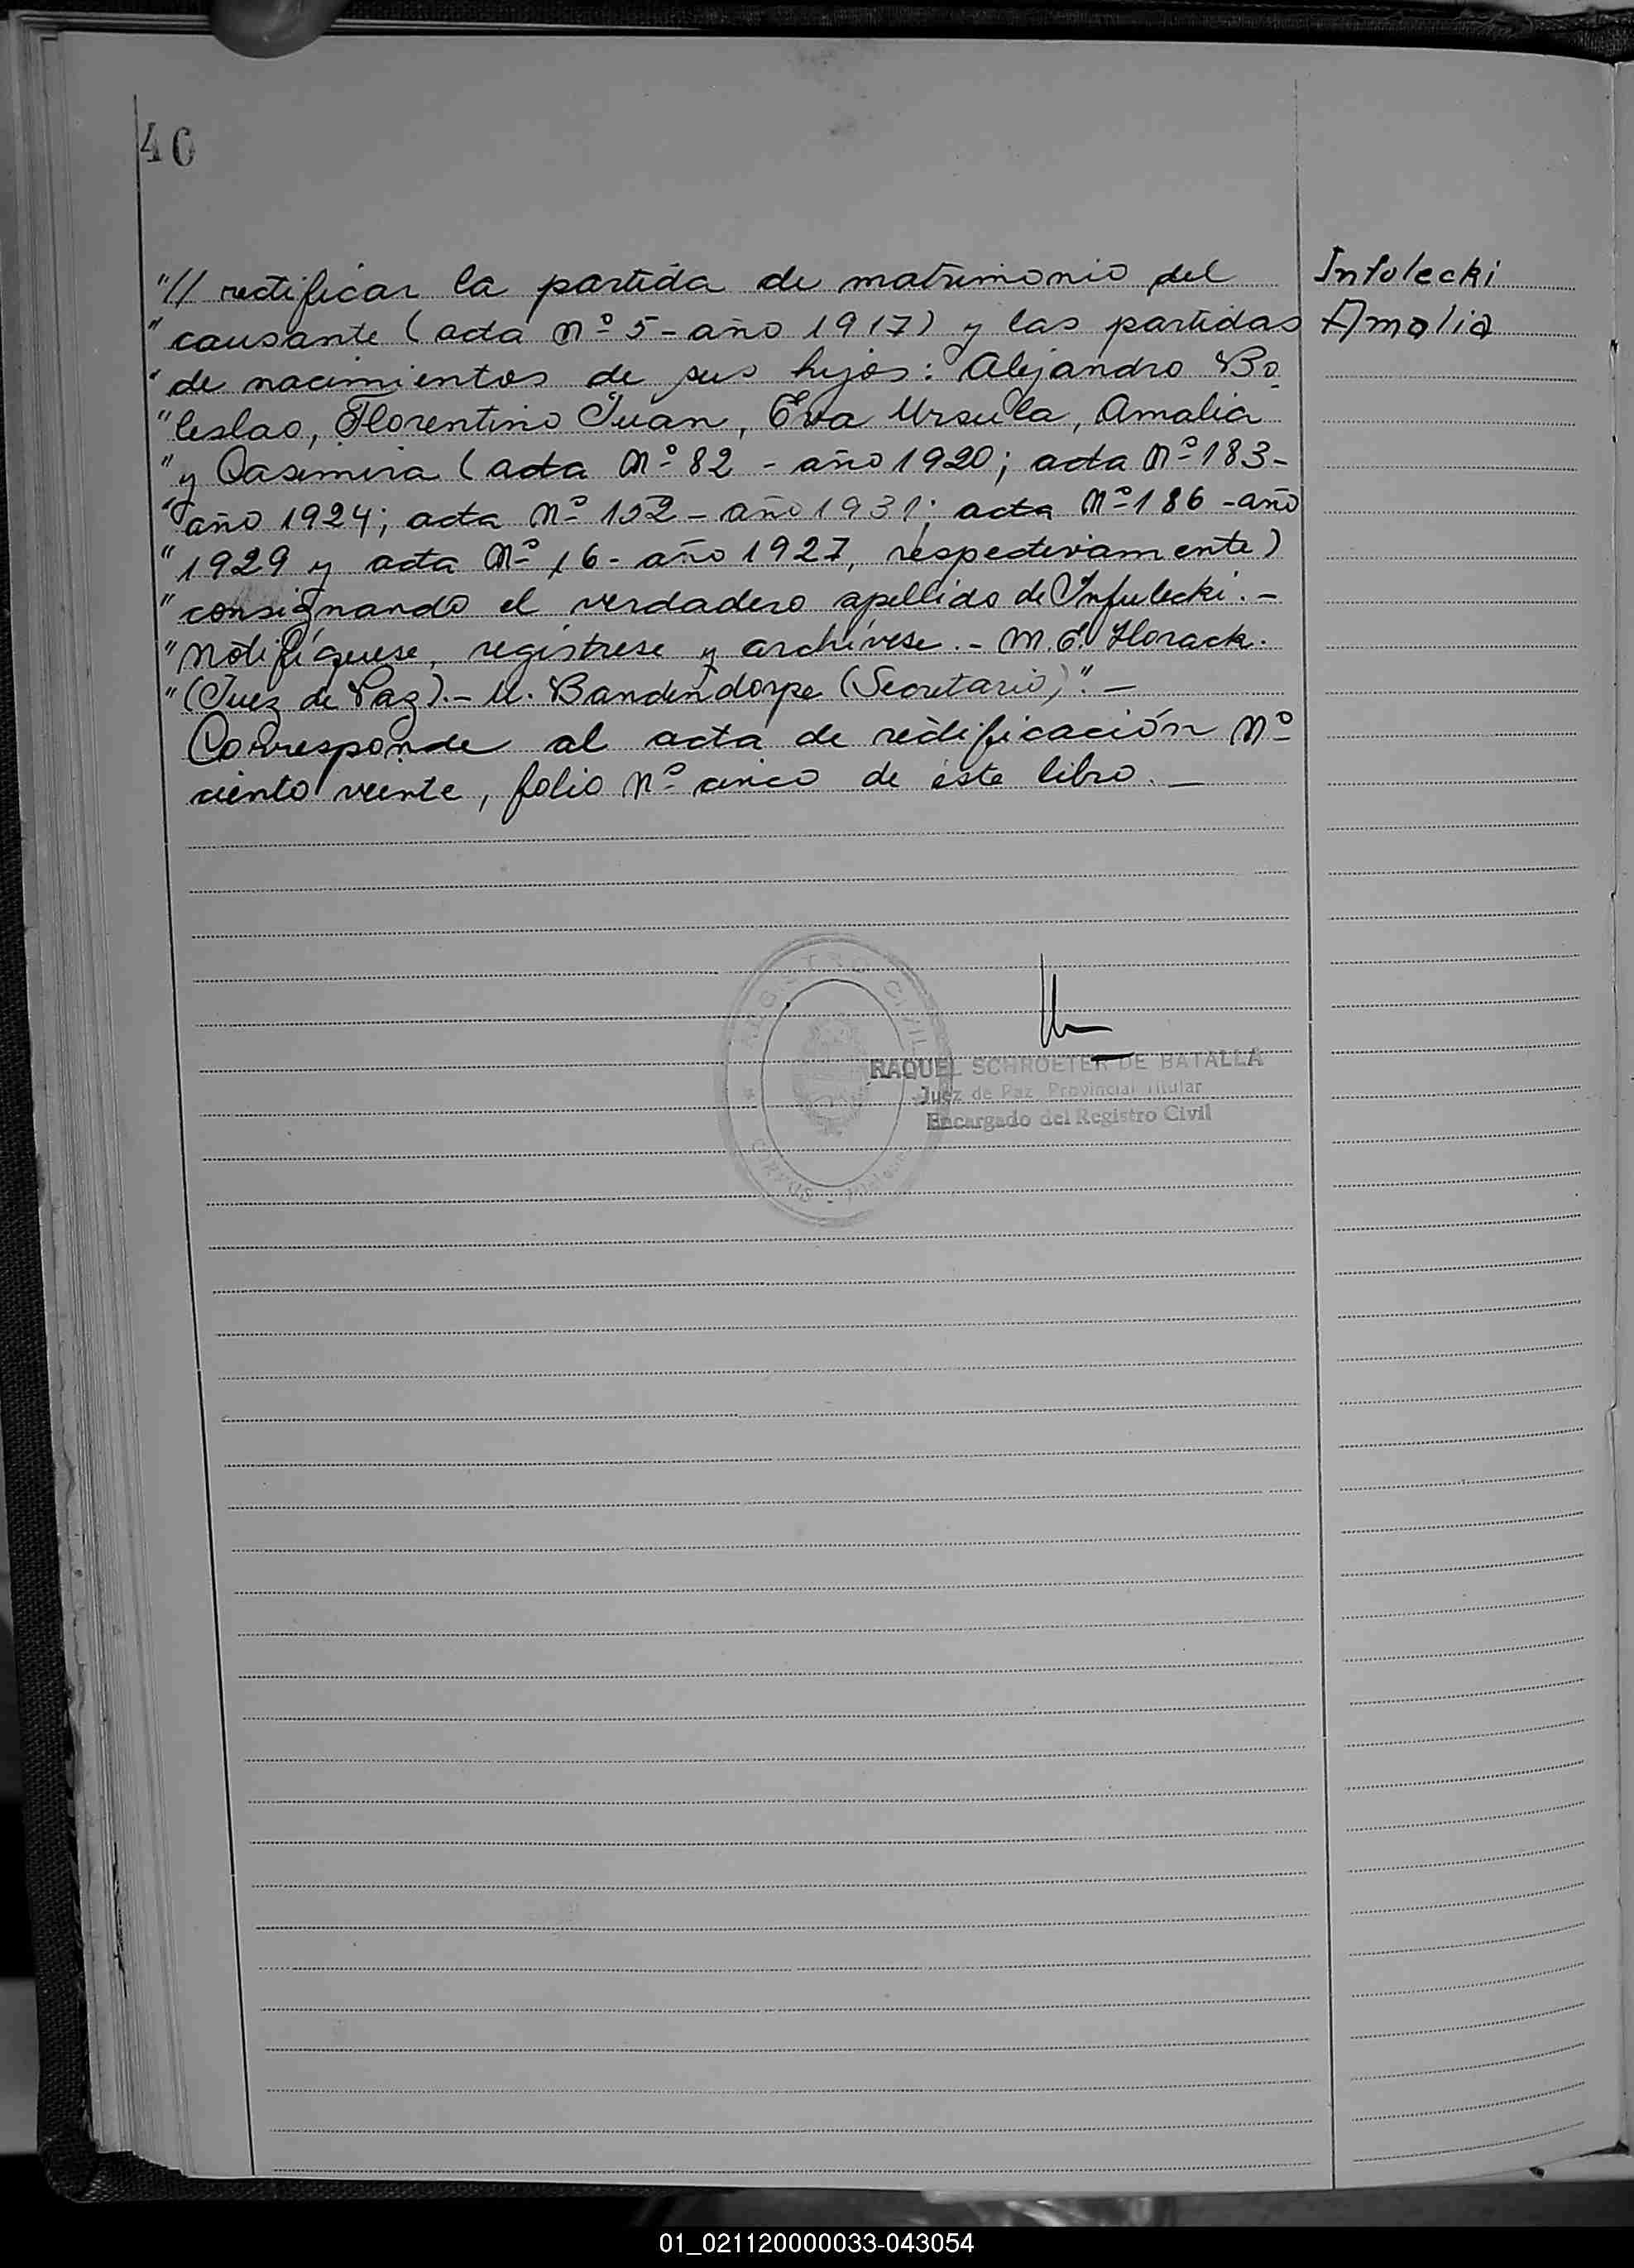 40
"// rectificar la partida de matrimonio del
"causante (acta Nº 5 - año 1917) y las partidas
"de nacimientos de sus hijos: Alejandro Bo
"leslao, Florentino Juan, Eva Ursula, Amalia
"y Casimira (acta Nº 82 - año 1920; acta Nº 183 -
"año 1924; acta Nº 152 - año 1931; acta Nº 186 - año
"1929 y acta Nº 16 - año 1927, respectivamente)
"consignando el verdadero apellido de Infulecki. -
"Notifíquese, regístrese y archívese. - M. E. Horack.
"(Juez de Paz). - U. Bandendorpe (Secretario)". -
Corresponde al acta de rectificación Nº
ciento veinte, folio Nº cinco de este libro. -
Infolecki
Amalia
REGISTRO CIVIL
CORPUS -
RAQUEL SCHROETER DE BATALLA
Juez de Paz Provincial Titular
Encargado del Registro Civil
01_021120000033-043054